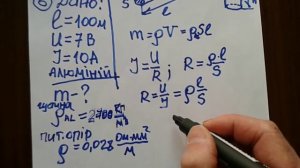 6 Дано:
ℓ = 100м
U = 7В
J = 10А
Алюміній
m - ?
густина
ρAL = 2700 кг/м³
пит. опір
ρ = 0,028 Ом·мм²/м
S
ℓ
m = ρV = ρSℓ
J = U/R; R = ρℓ/S
R = U/J = ρℓ/S